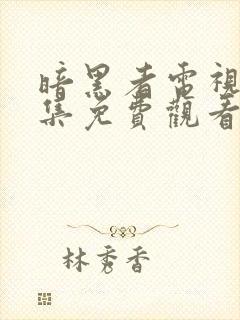 暗黑者電視
集免費觀看
林秀香